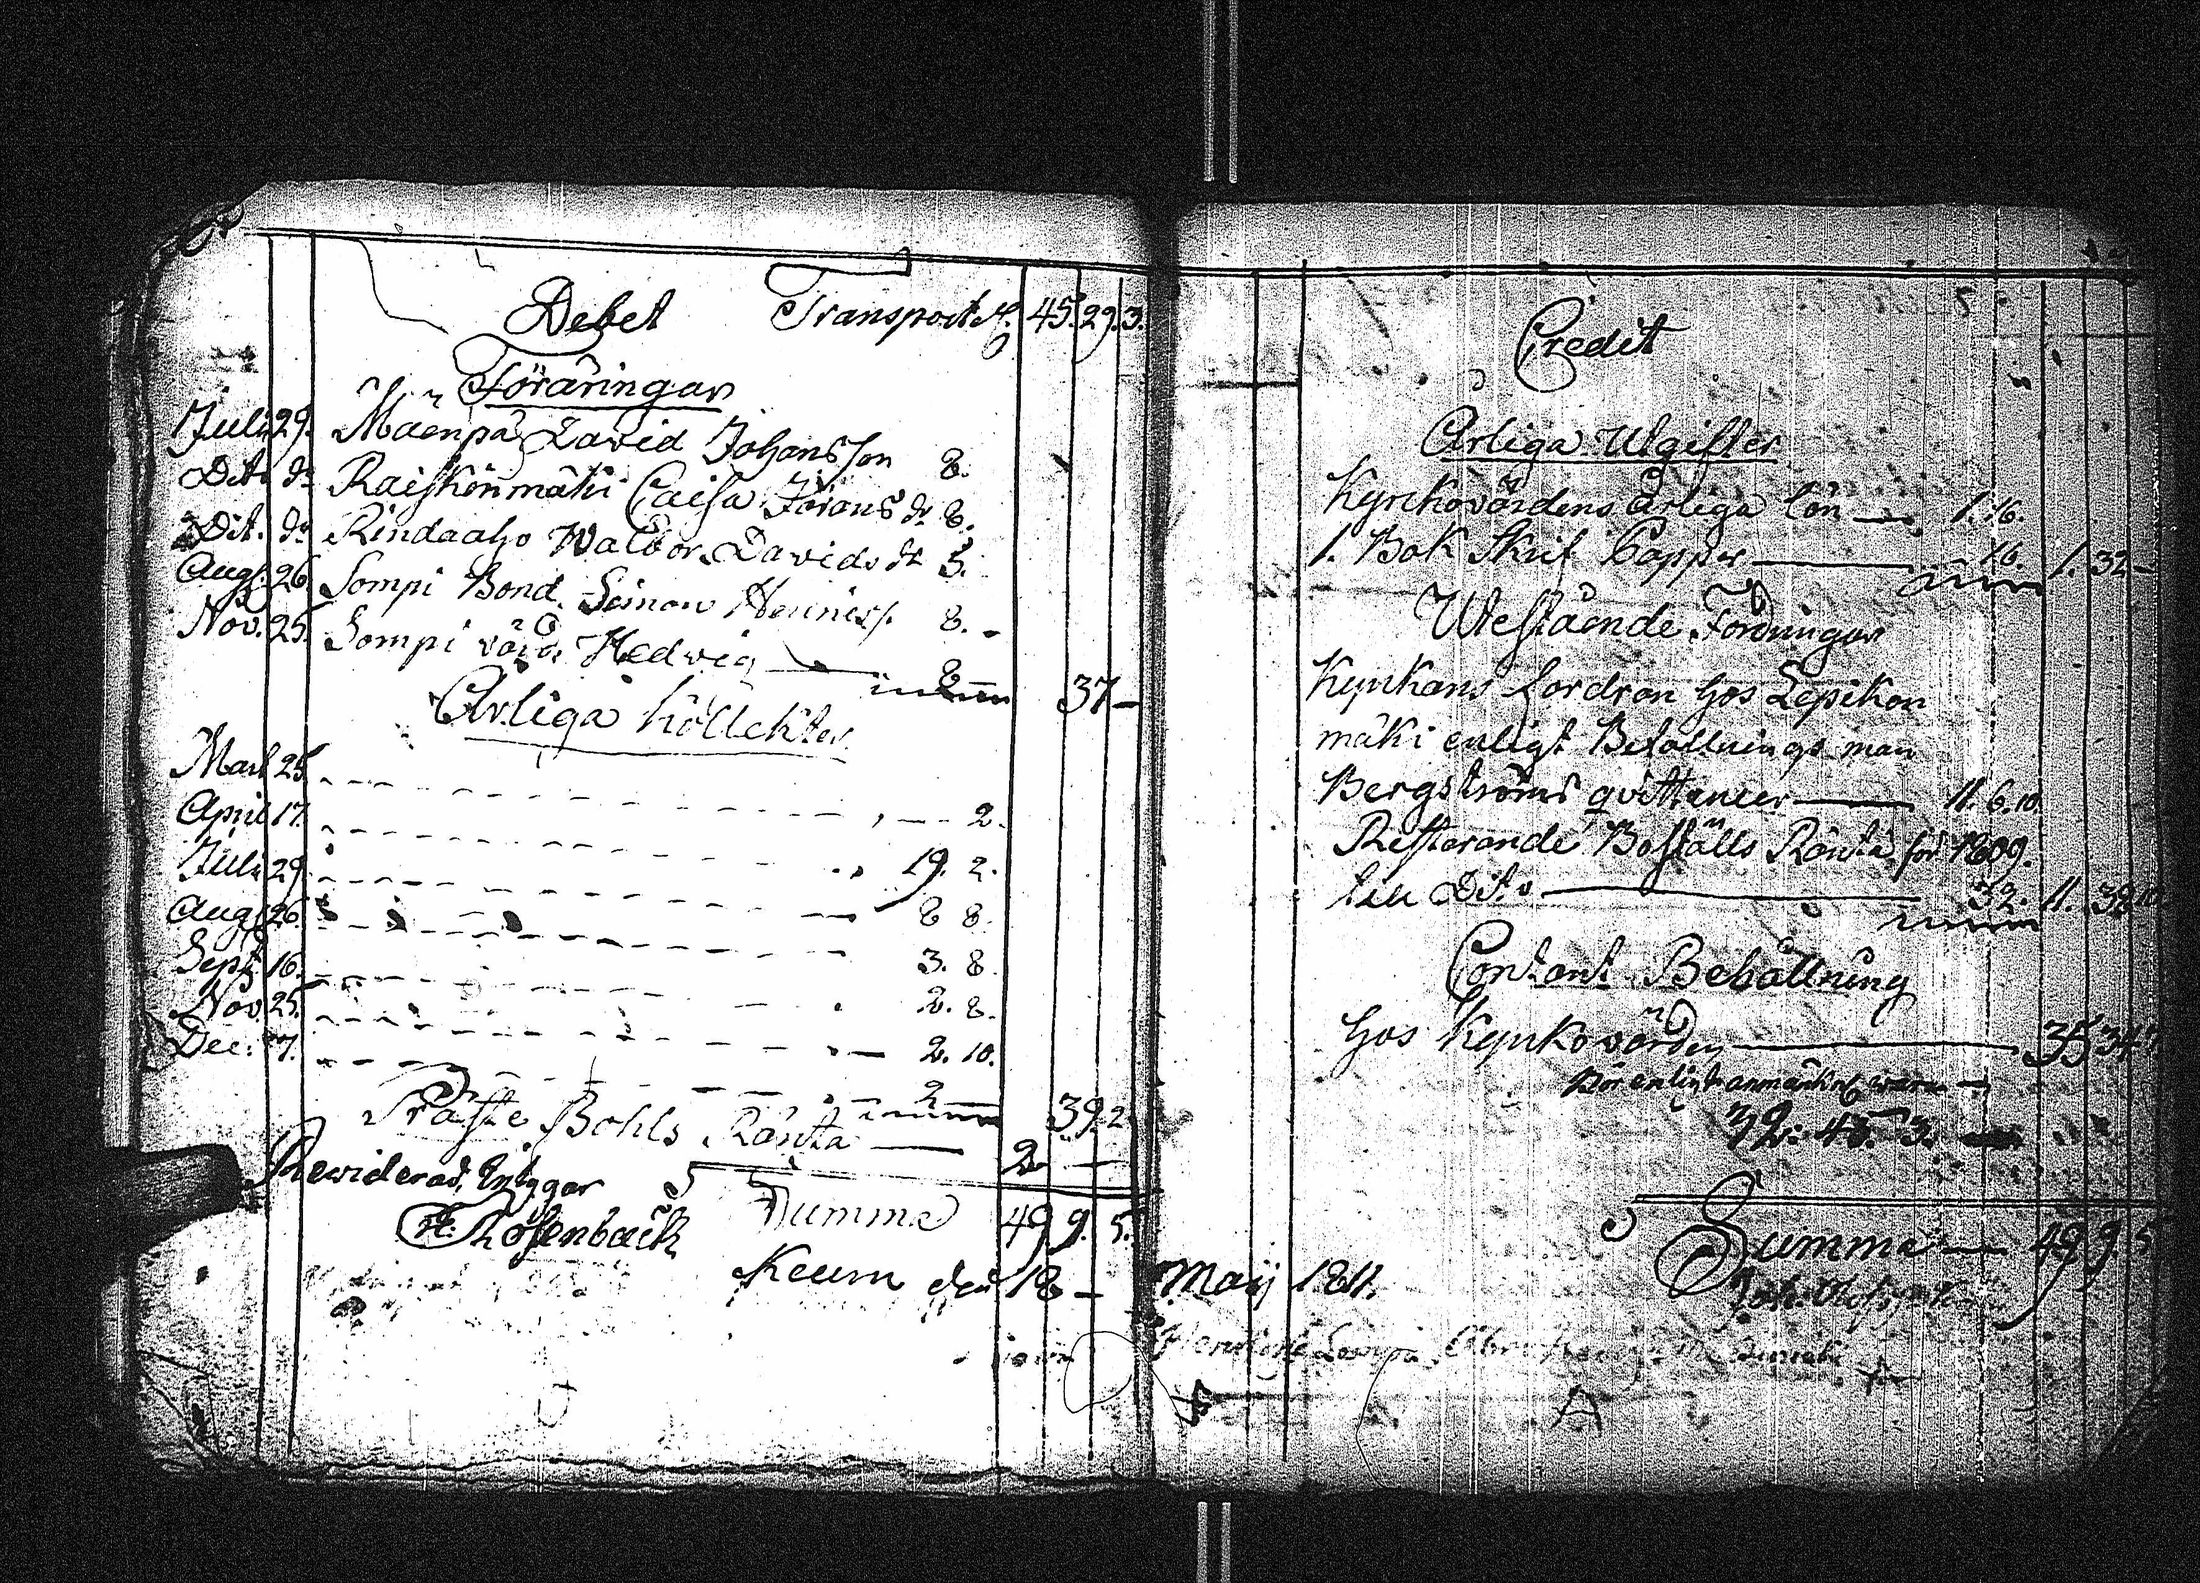 Debet Transport 45. 29. 3.
Föräringar
Juli 29. Mäenpä David Johansson 8.
Dito do Raiskinmäki Caisa Jörans dr 8.
Dit. do Rindaaho Walbor Davids dr 5.
Aug. 26 Sompi Bond. Simon Henriss. 8. -
Nov. 25. Sompi värd. Hedvig 8 37 -
Årliga Kollekter
Mart 25. 2.
April 17. 19. 2.
Juli 29. 8 8.
Aug. 26. 3. 8.
Sept. 16. 2. 8.
Nov. 25. 2. 10.
Dec. 7. 2 39. 2
Präste Bohls Ränta 2 —
Reviderad, Intygar
Rosenback Summa 49 9. 5.
Keuru den 18 - Maij 1811.
Credit
Årliga Utgifter
Kyrckovärdens årliga lön 1. 16.
1. Bok Skrif Papper 16. 1. 32 -
Utestående Fordringar
Kyrkans fordran hos Lepikon
mäki enligt Befallningsman
Bergströms qvittancer 11. 6. 10.
Resterande Boställs Ränta för 1809.
till Dito 32. 11. 38 10
Contant Behållning
hos Kyrkovärden 35 34 7.
bör enligt anmärkn. vara
32: 45. 3.
Summa 49 9. 5